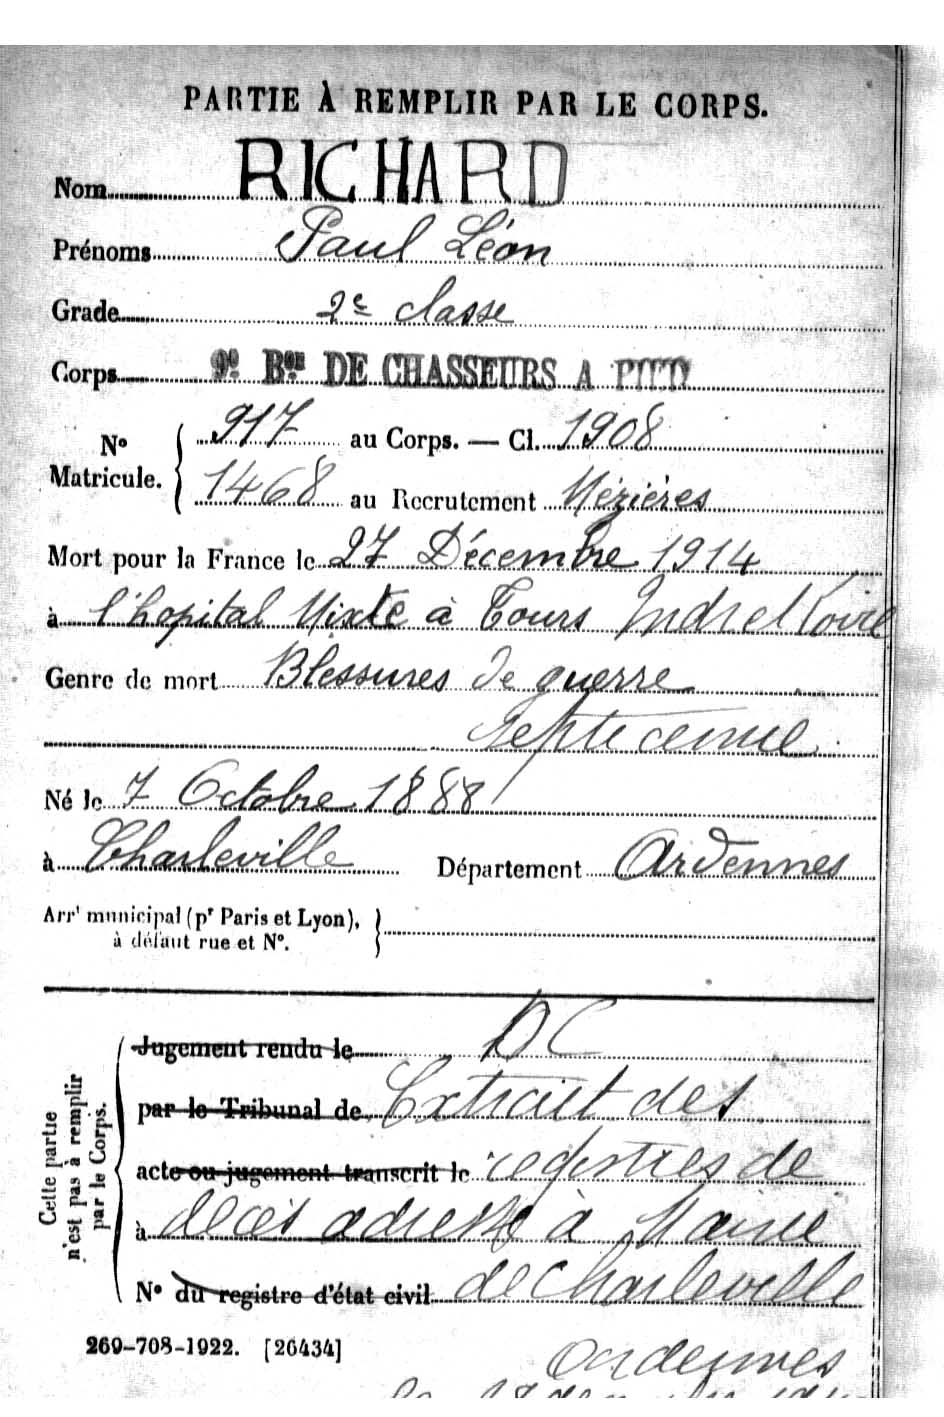 PARTIE À REMPLIR PAR LE CORPS.
Nom RICHARD
Prénoms Paul Léon
Grade 2e classe
Corps 9e Bon DE CHASSEURS A PIED
No Matricule. { 917 au Corps. — Cl. 1908
1468 au Recrutement Mézières
Mort pour la France le 27 Décembre 1914
à l'hopital Mixte à Tours Indre et Loire
Genre de mort Blessures de guerre
Septicemie
Né le 7 Octobre 1888
à Charleville Département Ardennes
Arrt municipal (pr Paris et Lyon), }
à défaut rue et No.
Cette partie n'est pas à remplir par le Corps. {
Jugement rendu le DC
par le Tribunal de Extrait des
acte ou jugement transcrit le registres de
à décès adressé à Mairie
No du registre d'état civil de Charleville
269-708-1922. [26434]
Ardennes